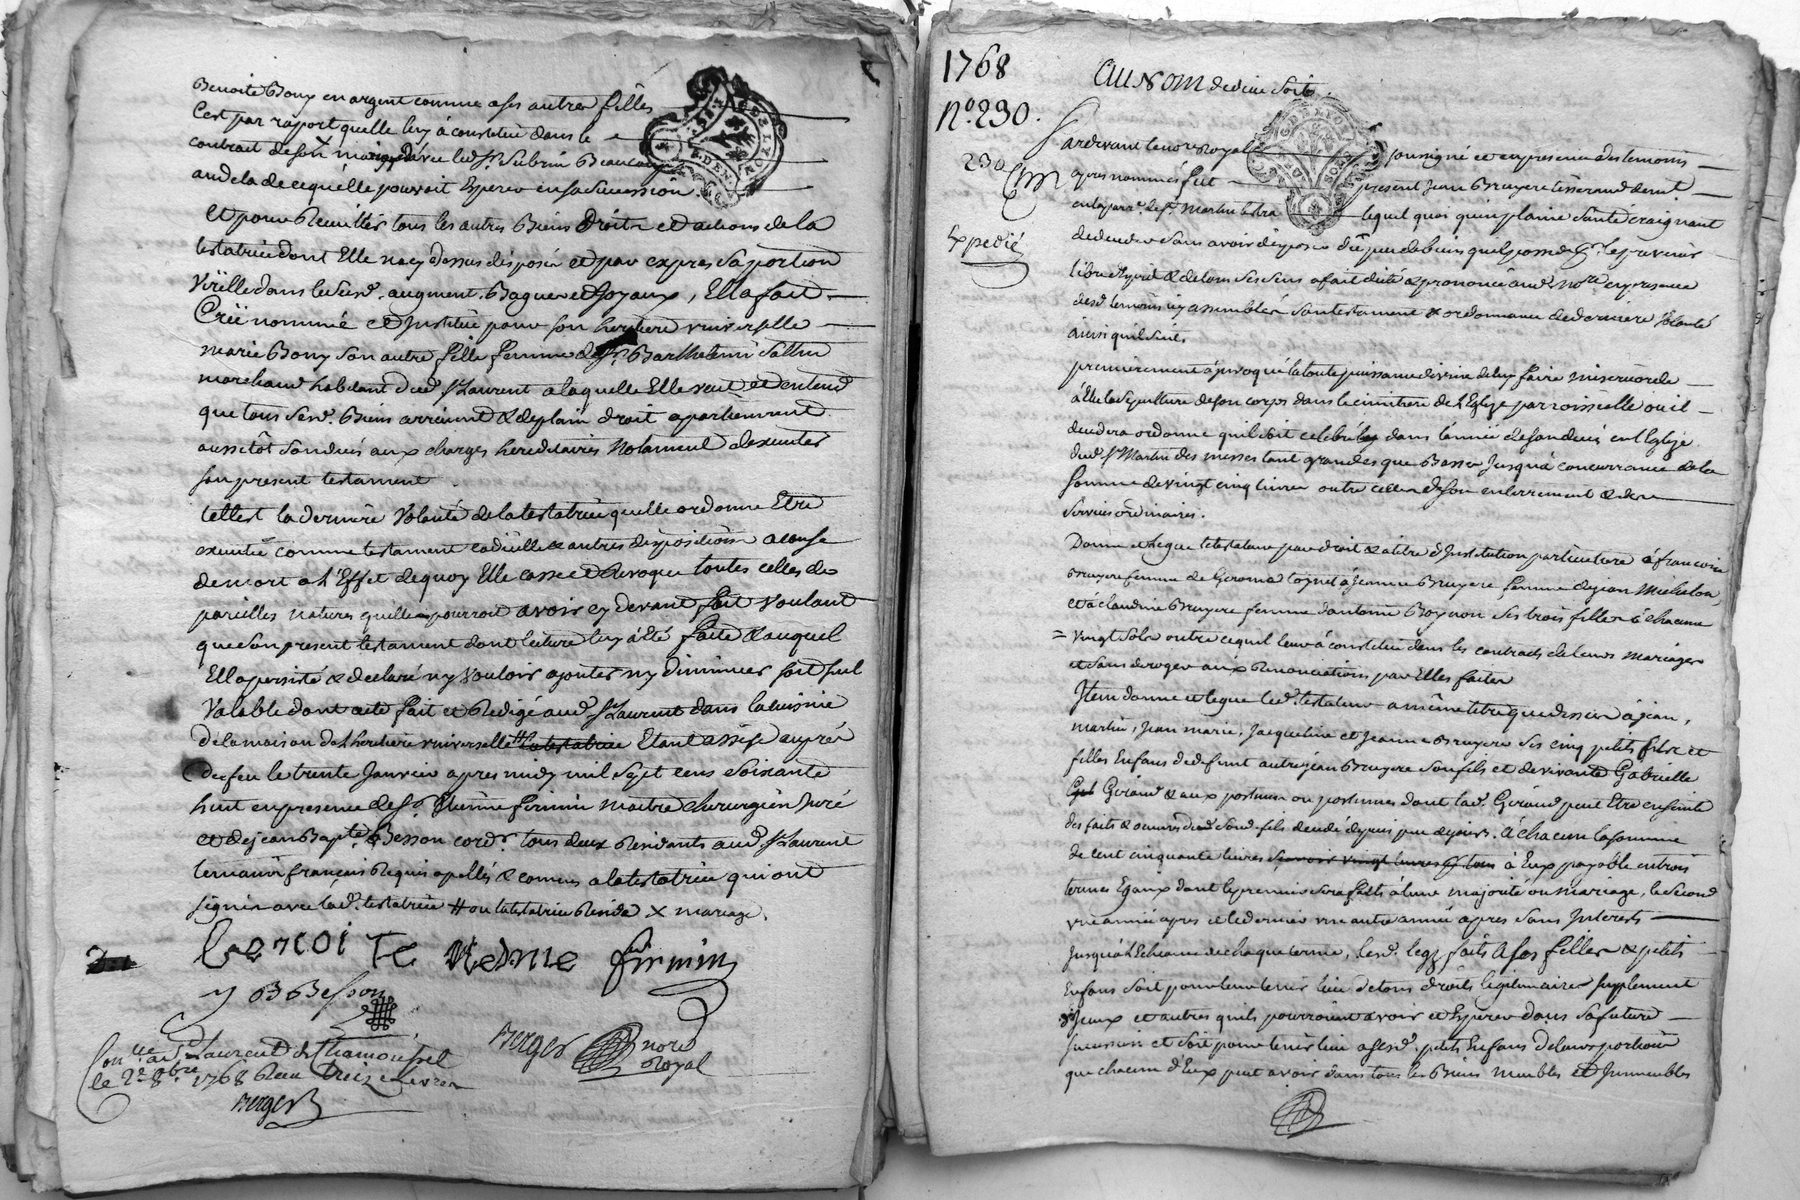 Benoite Bony en argent comme a ses autres filles
C'est par raport quelle luy à constitué dans le
contrat de son mariage avec led. Sr. Subrin Beaucoup
audela de cequ'elle pouvoit Esperer en sa succession.
Et pour Recuillir tous les autres Biens Droits et actions de la
testatrice dont Elle na cy dessus disposée et par exprès sa portion
Virille dans les susd. augment, Bagues et Joyaux, Elle a fait
Créé nommée et Instituée pour son heritiere universelle
marie Bony son autre fille femme de Sr. Barthelemi
marchand habitant dud. St Laurent a laquelle Elle veut et entend
que tous sesd. Biens arrivent & de plain droit apartiennent
aussitôt son decès aux charges hereditaires Notament dexecuter
son present testament.
telle est la derniere Volonté de la testatrice quelle ordonne Etre
executée comme testament codicille & autres dispositions a cause
de mort a l'Effet de quoy Elle casse et Revoque toutes celles de
pareilles natures quelle pourroit avoir cy devant fait Voulant
que son present testament dont lecture luy a été faite & auquel
Elle a persisté & declaré n'y Vouloir ajouter ny diminuer soit seul
Valable dont acte fait et Redigé aud. St Laurent dans la cuisine
de la maison de l'heritiere universelle # la testatrice Etant assise auprès
du feu le trente Janvier apres midy mil sept cens soixante
huit en presence de Sr. Etienne firmin maitre chirurgien Juré
et de jean Bapte. Besson cordr. tous deux Residants aud. St Laurent
temoins français Requis apellés & connus a la testatrice qui ont
signé avec lad. testatrice # ou la testatrice Reside X mariage.
benoi te firmin
J B Besson
Berger nore Royal
Conlle. a St Laurent de Chamousset
le 2e 8bre 1768 Reçu treize livres
Berger
1768
No. 230.
230
Expedié
AU NOM de dieu soit
Pardevant le nore Royal soussigné et en presence des temoins
apres nommés fut present Jean Bruyere tisserand demt.
en la parr. de St. Martin lequel quoi qu'en plaine santé craignant
de deceder sans avoir disposé du peu de biens quel possede
libre d'esprit & de tous ses sens a fait dicté & prononcé aud. Nore en presence
desd. temoins icy assemblés son testament & ordonnance de derniere Volonté
ainsi quil suit.
premierement à invoqué la toute puissance divine de luy faire misericorde
à Elû la sepulture de son corps dans le cimetiere de l'Eglise parroissialle ou il
decedera ordonne quil soit celebré dans l'année de son decés en l'Eglise
dud. St Martin des messes tant grandes que Basses Jusqu'à concurrance de la
somme de vingt cinq livres outre celles de son enterrement & de
services ordinaires.
Donne et legue le testateur par droit & a titre d'Institution particuliere à francoise
Bruyere femme de Gerome à Jeanne Bruyere femme de jean Michalon,
et à claudine Bruyere femme d'antoine Boynon ses trois filles à chacune
= vingt sols outre ce quil leur à constitué dans les contrats de leurs mariages
et sans deroger aux Renonciations par Elles faites
Item donne et legue led. testateur a même titre que dessus à jean,
martin, Jean marie, Jacqueline et Jeanne Bruyere ses cinq petits fils et
filles Enfans de defunt autre jean Bruyere son fils et de vivante Gabrielle
Girard & aux postume ou postumes dont lad. Girard peut Etre enceinte
des faits & oeuvres dud. sond. fils decedé depuis peu de jours, à chacun la somme
de cent cinquante livres à Eux payable en trois
termes Egaux dont le premier sera fait à leur majorité ou mariage, le second
une année apres et le dernier une autre année apres sans Interests
Jusqu'à l'Echeance de chaque terme, lesd. legs faits a ses filles & petits
Enfans soit pour leur tenir lieu de tous droits legitimaires supplement
d'Jceux et autres quils pourroient avoir et Esperer dans sa future
succession et soit pour tenir lieu a sesd. petits Enfans de leurs portions
que chacun d'Eux peut avoir dans tous les Biens meubles et Immeubles